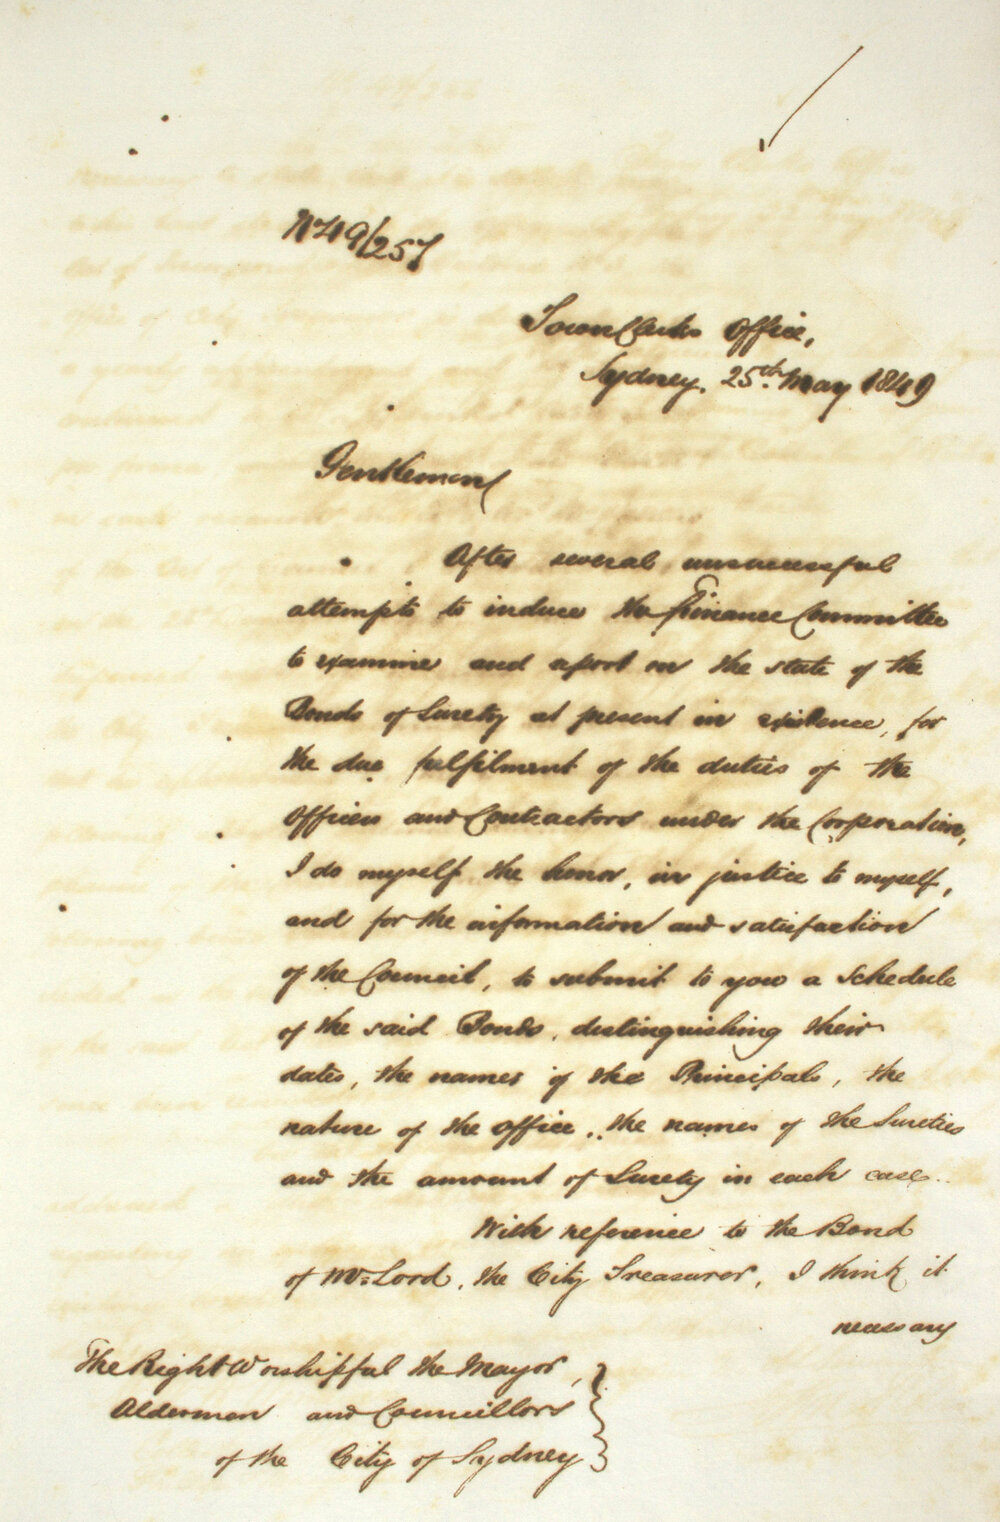 No 49/257
Town Clerks Office,
Sydney, 25th May 1849
Gentlemen
After several unsuccessful
attempts to induce the Finance Committee
to examine and report on the state of the
Bonds of Surety at present in existence, for
the due fulfilment of the duties of the
Officers and Contractors under the Corporation,
I do myself the honor, in justice to myself,
and for the information and satisfaction
of the Council, to submit to you a Schedule
of the said Bonds, distinguishing their
dates, the names of the Principals, the
nature of the office, the names of the Sureties
and the amount of Surety in each case.
With reference to the Bond
of Mr Lord, the City Treasurer, I think it
necessary
The Right Worshipful the Mayor,
Aldermen and Councillors
of the City of Sydney